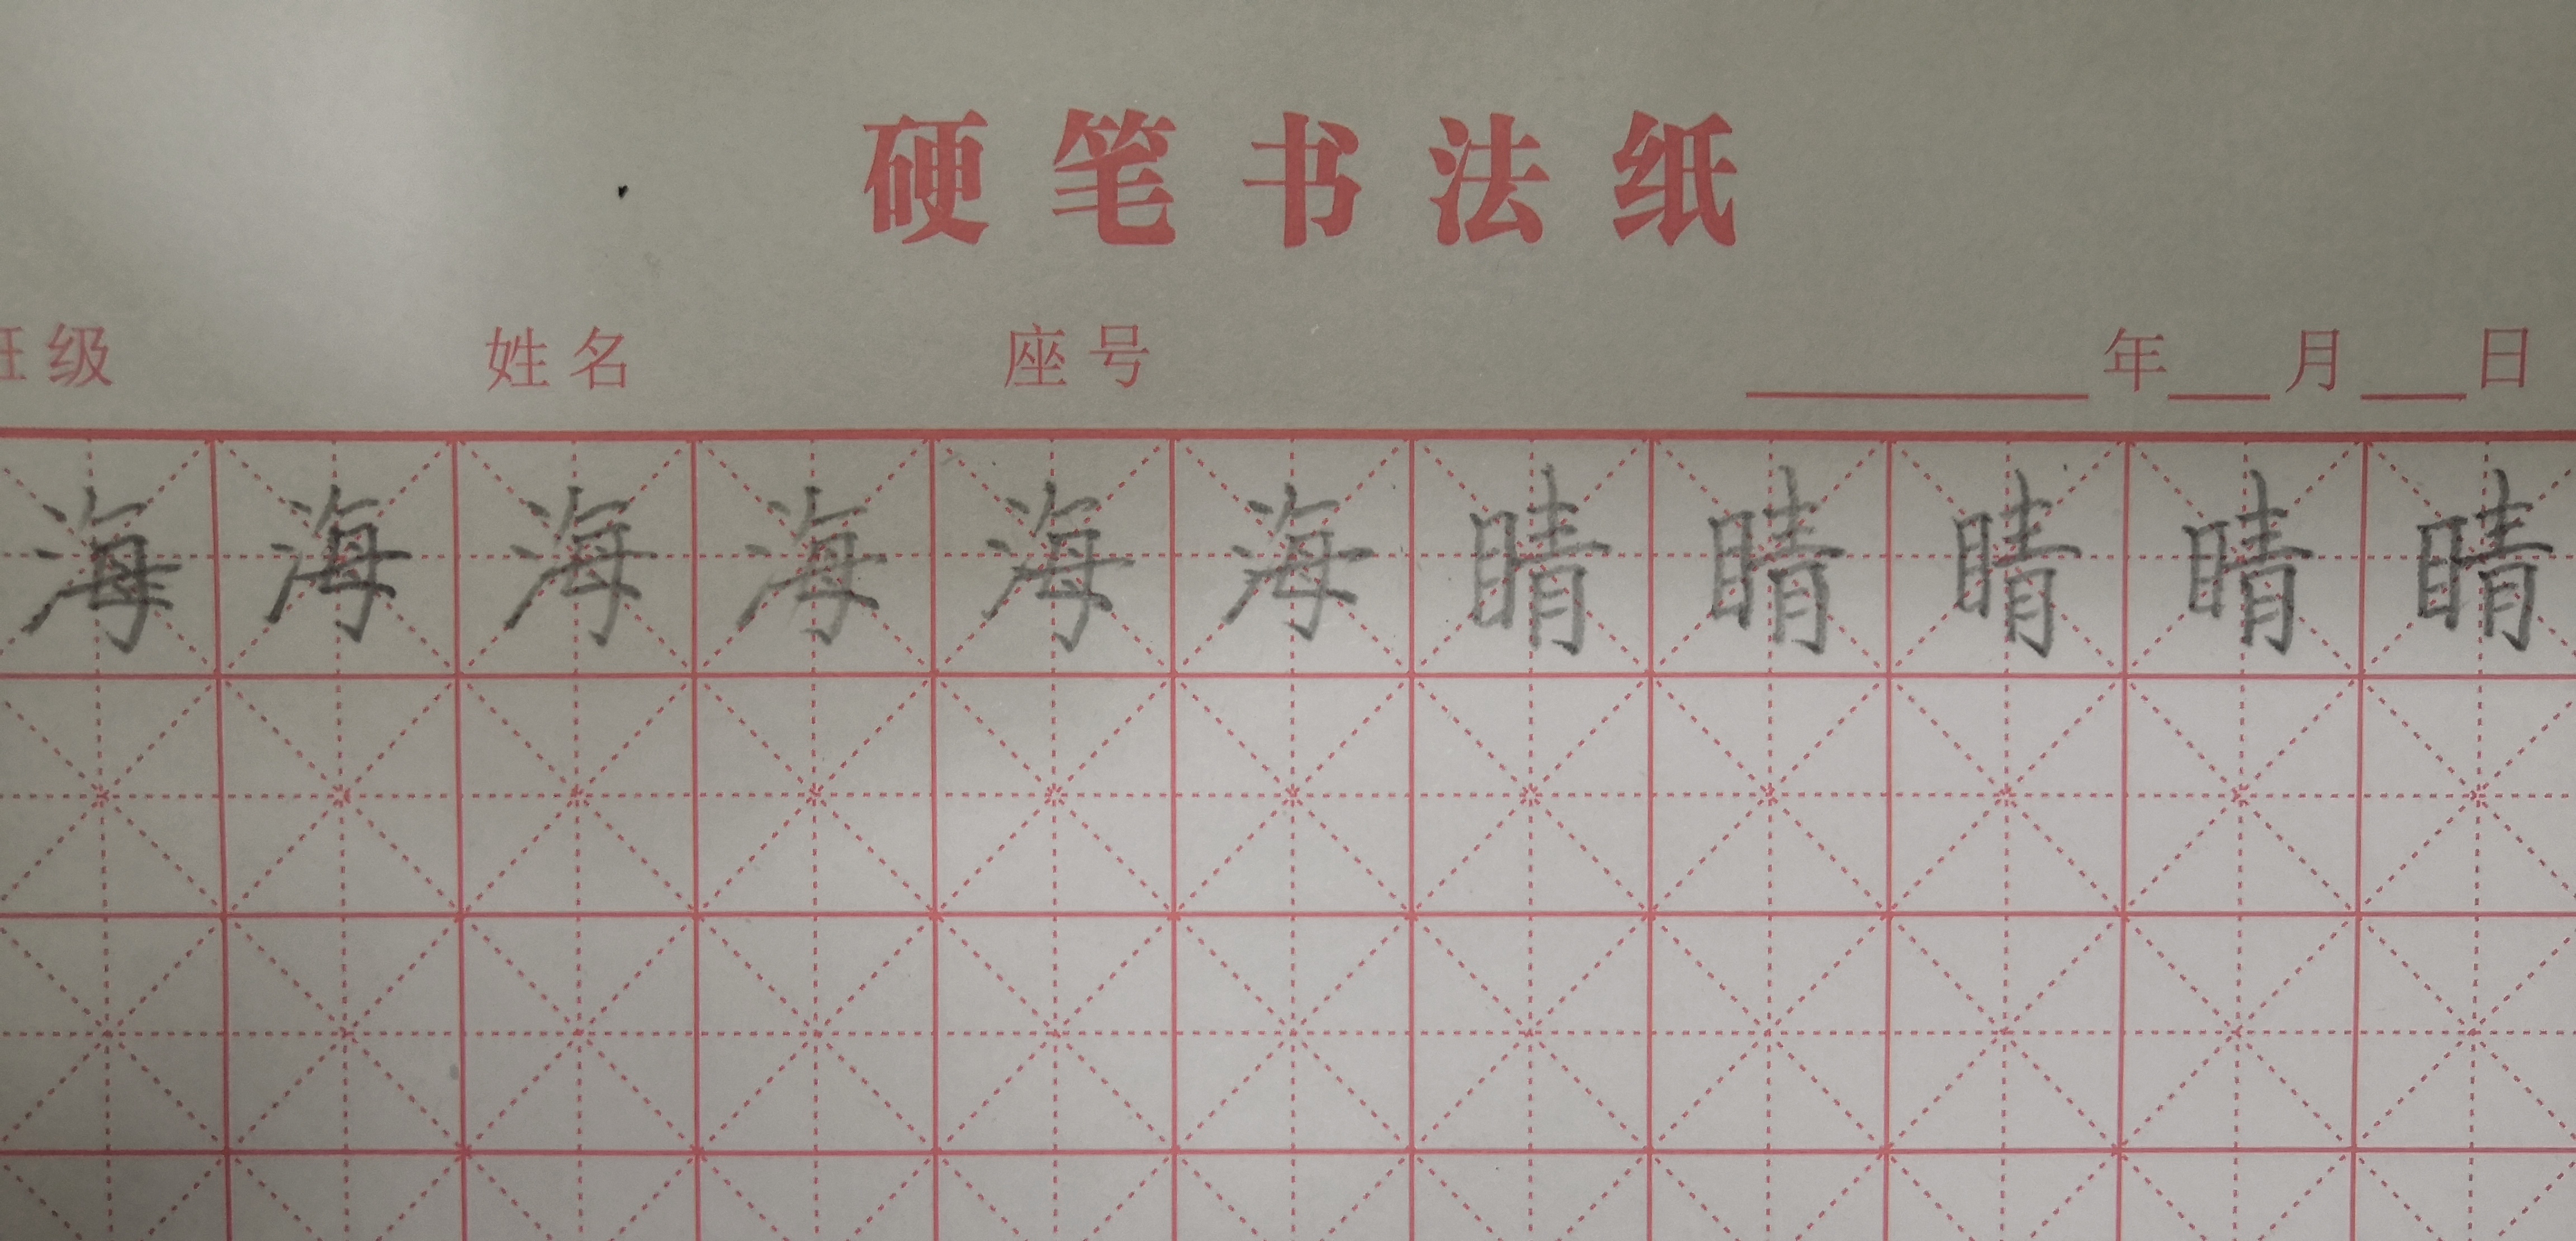 硬笔书法纸
班级 姓名 座号 年 月 日
海海海海海海睛睛睛睛睛